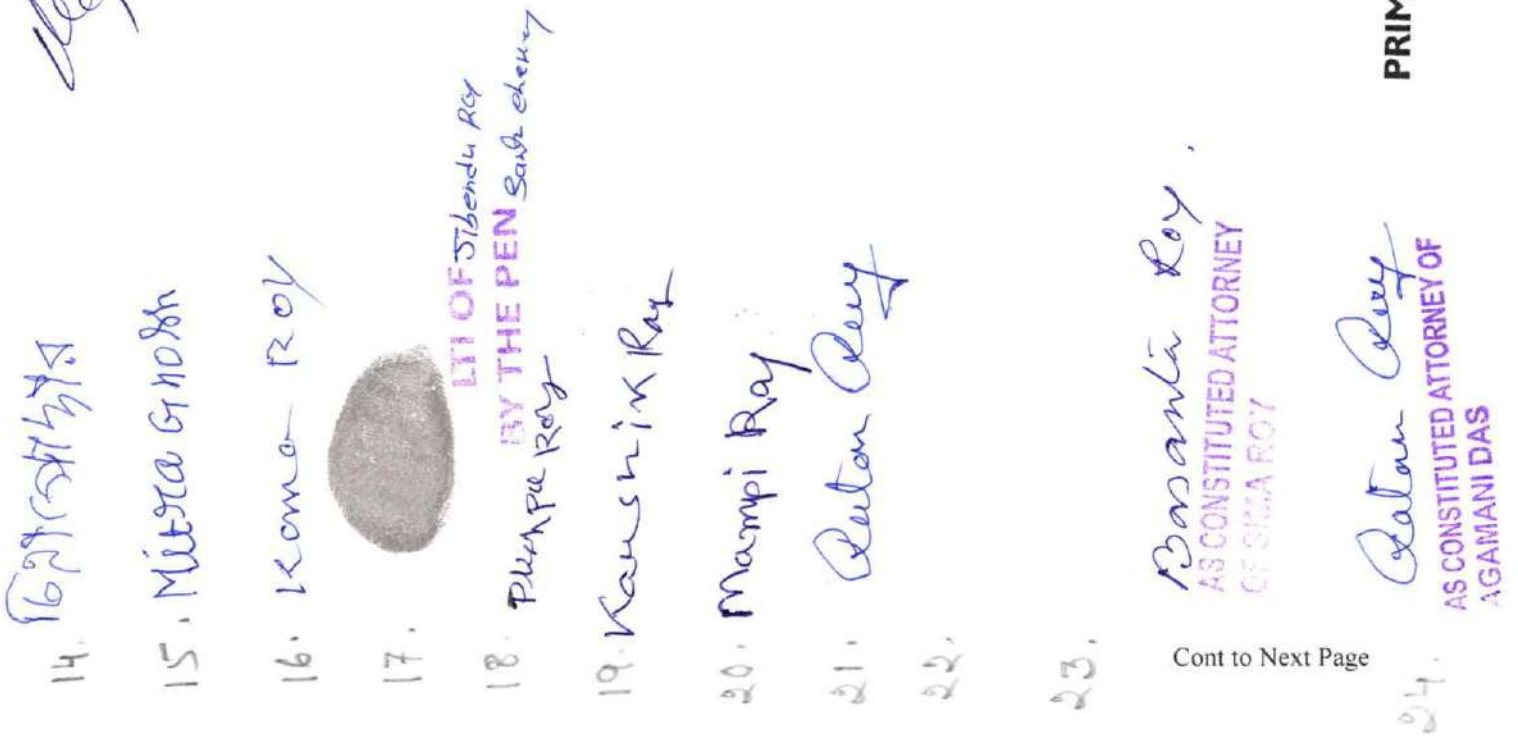 14.
15. Mitra Ghosh
16. Koma Roy
17.
LTI OF Sibendu Roy
BY THE PEN
18. Pushpa Roy
19. Kaushik Ray
20. Mampi Ray
21. Ratan Roy
22.
23. Basanta Roy.
AS CONSTITUTED ATTORNEY
OF SIMA ROY
Cont to Next Page
24. Ratan Roy
AS CONSTITUTED ATTORNEY OF
AGAMANI DAS
PRIM